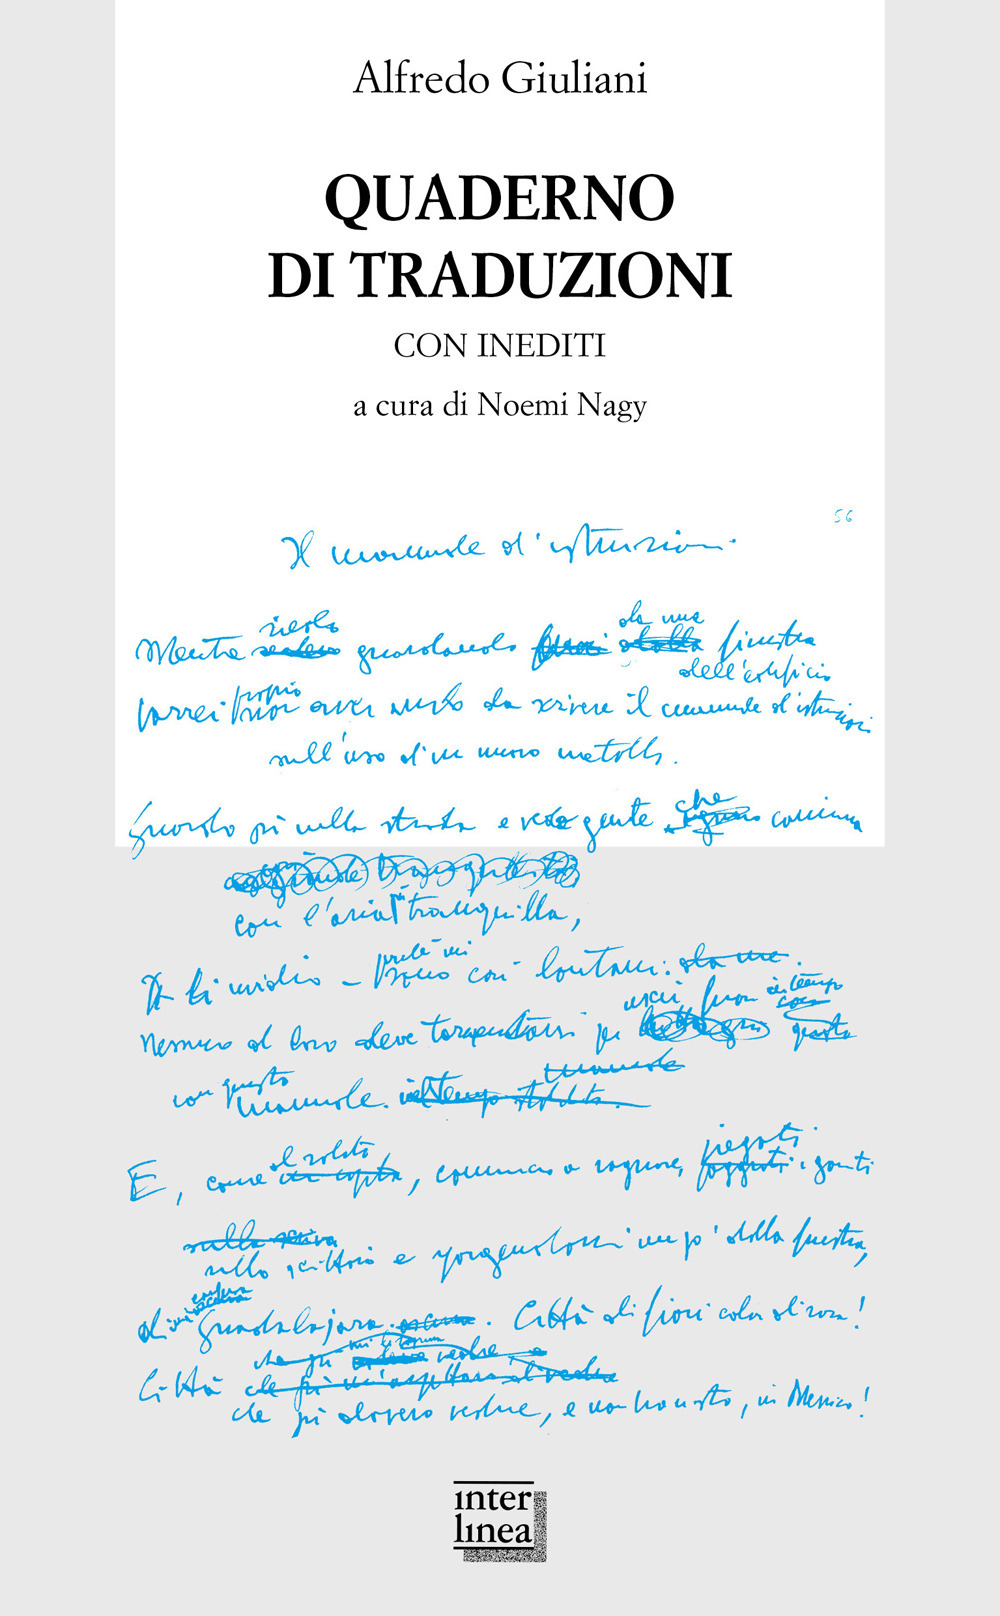 Alfredo Giuliani
QUADERNO
DI TRADUZIONI
CON INEDITI
a cura di Noemi Nagy
56
Il manuale d'istruzioni.
siedo da una
Mentre guardando finestra
dell'edificio
proprio
vorrei non aver da scrivere il manuale d'istruzioni
sull'uso d'un nuovo metallo.
Guardo giù nella strada e vedo gente che cammina
con l'aria tranquilla,
li invidio – così lontani: da me.
in tempo
Nessuno di loro deve per questo
con questo manuale.
E, come al solito, comincio a sognare, i gomiti
piegati
sullo scrittoio e sporgendomi un po' dalla finestra,
di Guadalajara. Città di fiori color di rosa!
Città
che più davvero vedere, e non ho visto, in Messico!
inter
linea